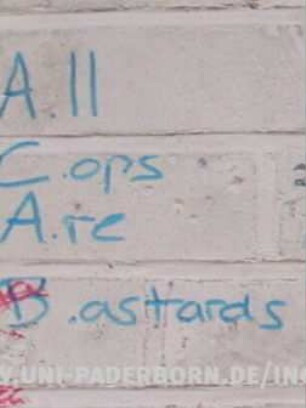 A.ll
C.ops
A.re
B.astards
W.UNI-PADERBORN.DE/IN